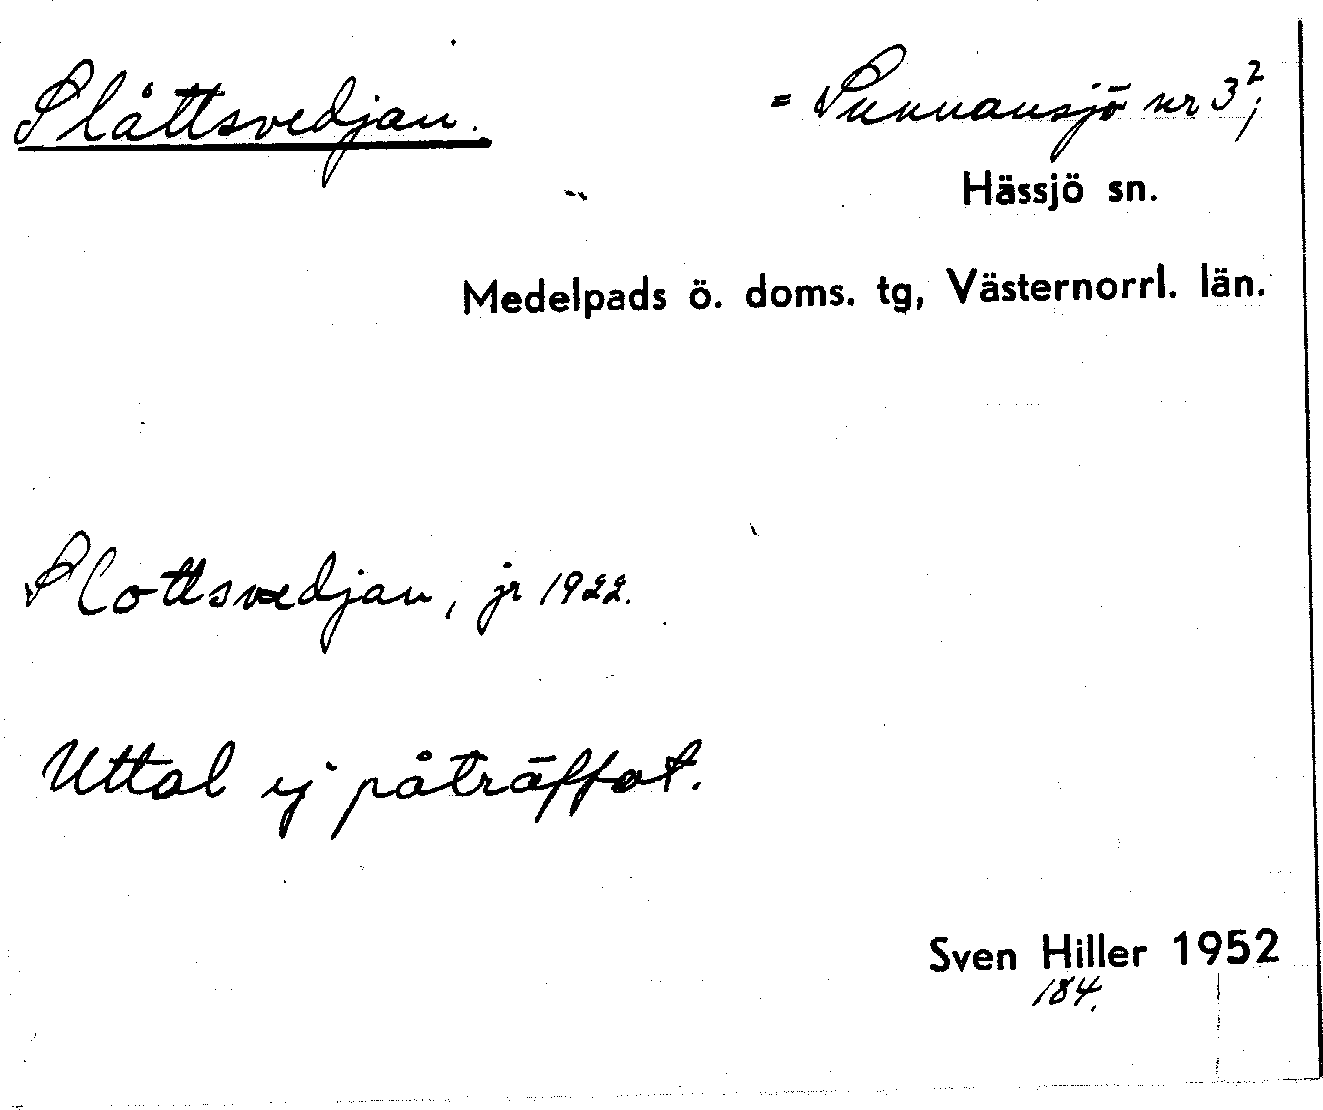 Slåttsvedjan.
= Sunnansjö nr 3²;
Hässjö sn.
Medelpads ö. doms. tg, Västernorrl. län.
Slottsvedjan, jr 1922.
Uttal ej påträffat.
Sven Hiller 1952
184.